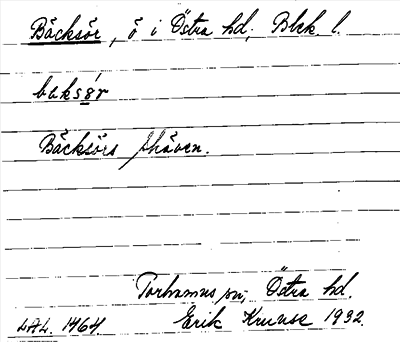 Bäcksör, ö i Östra hd, Blek l.
bɛksør
Bäcksörs skäven.
Torhamns sn, Östra hd.
LAL. 1464. Erik Kruuse 1932.